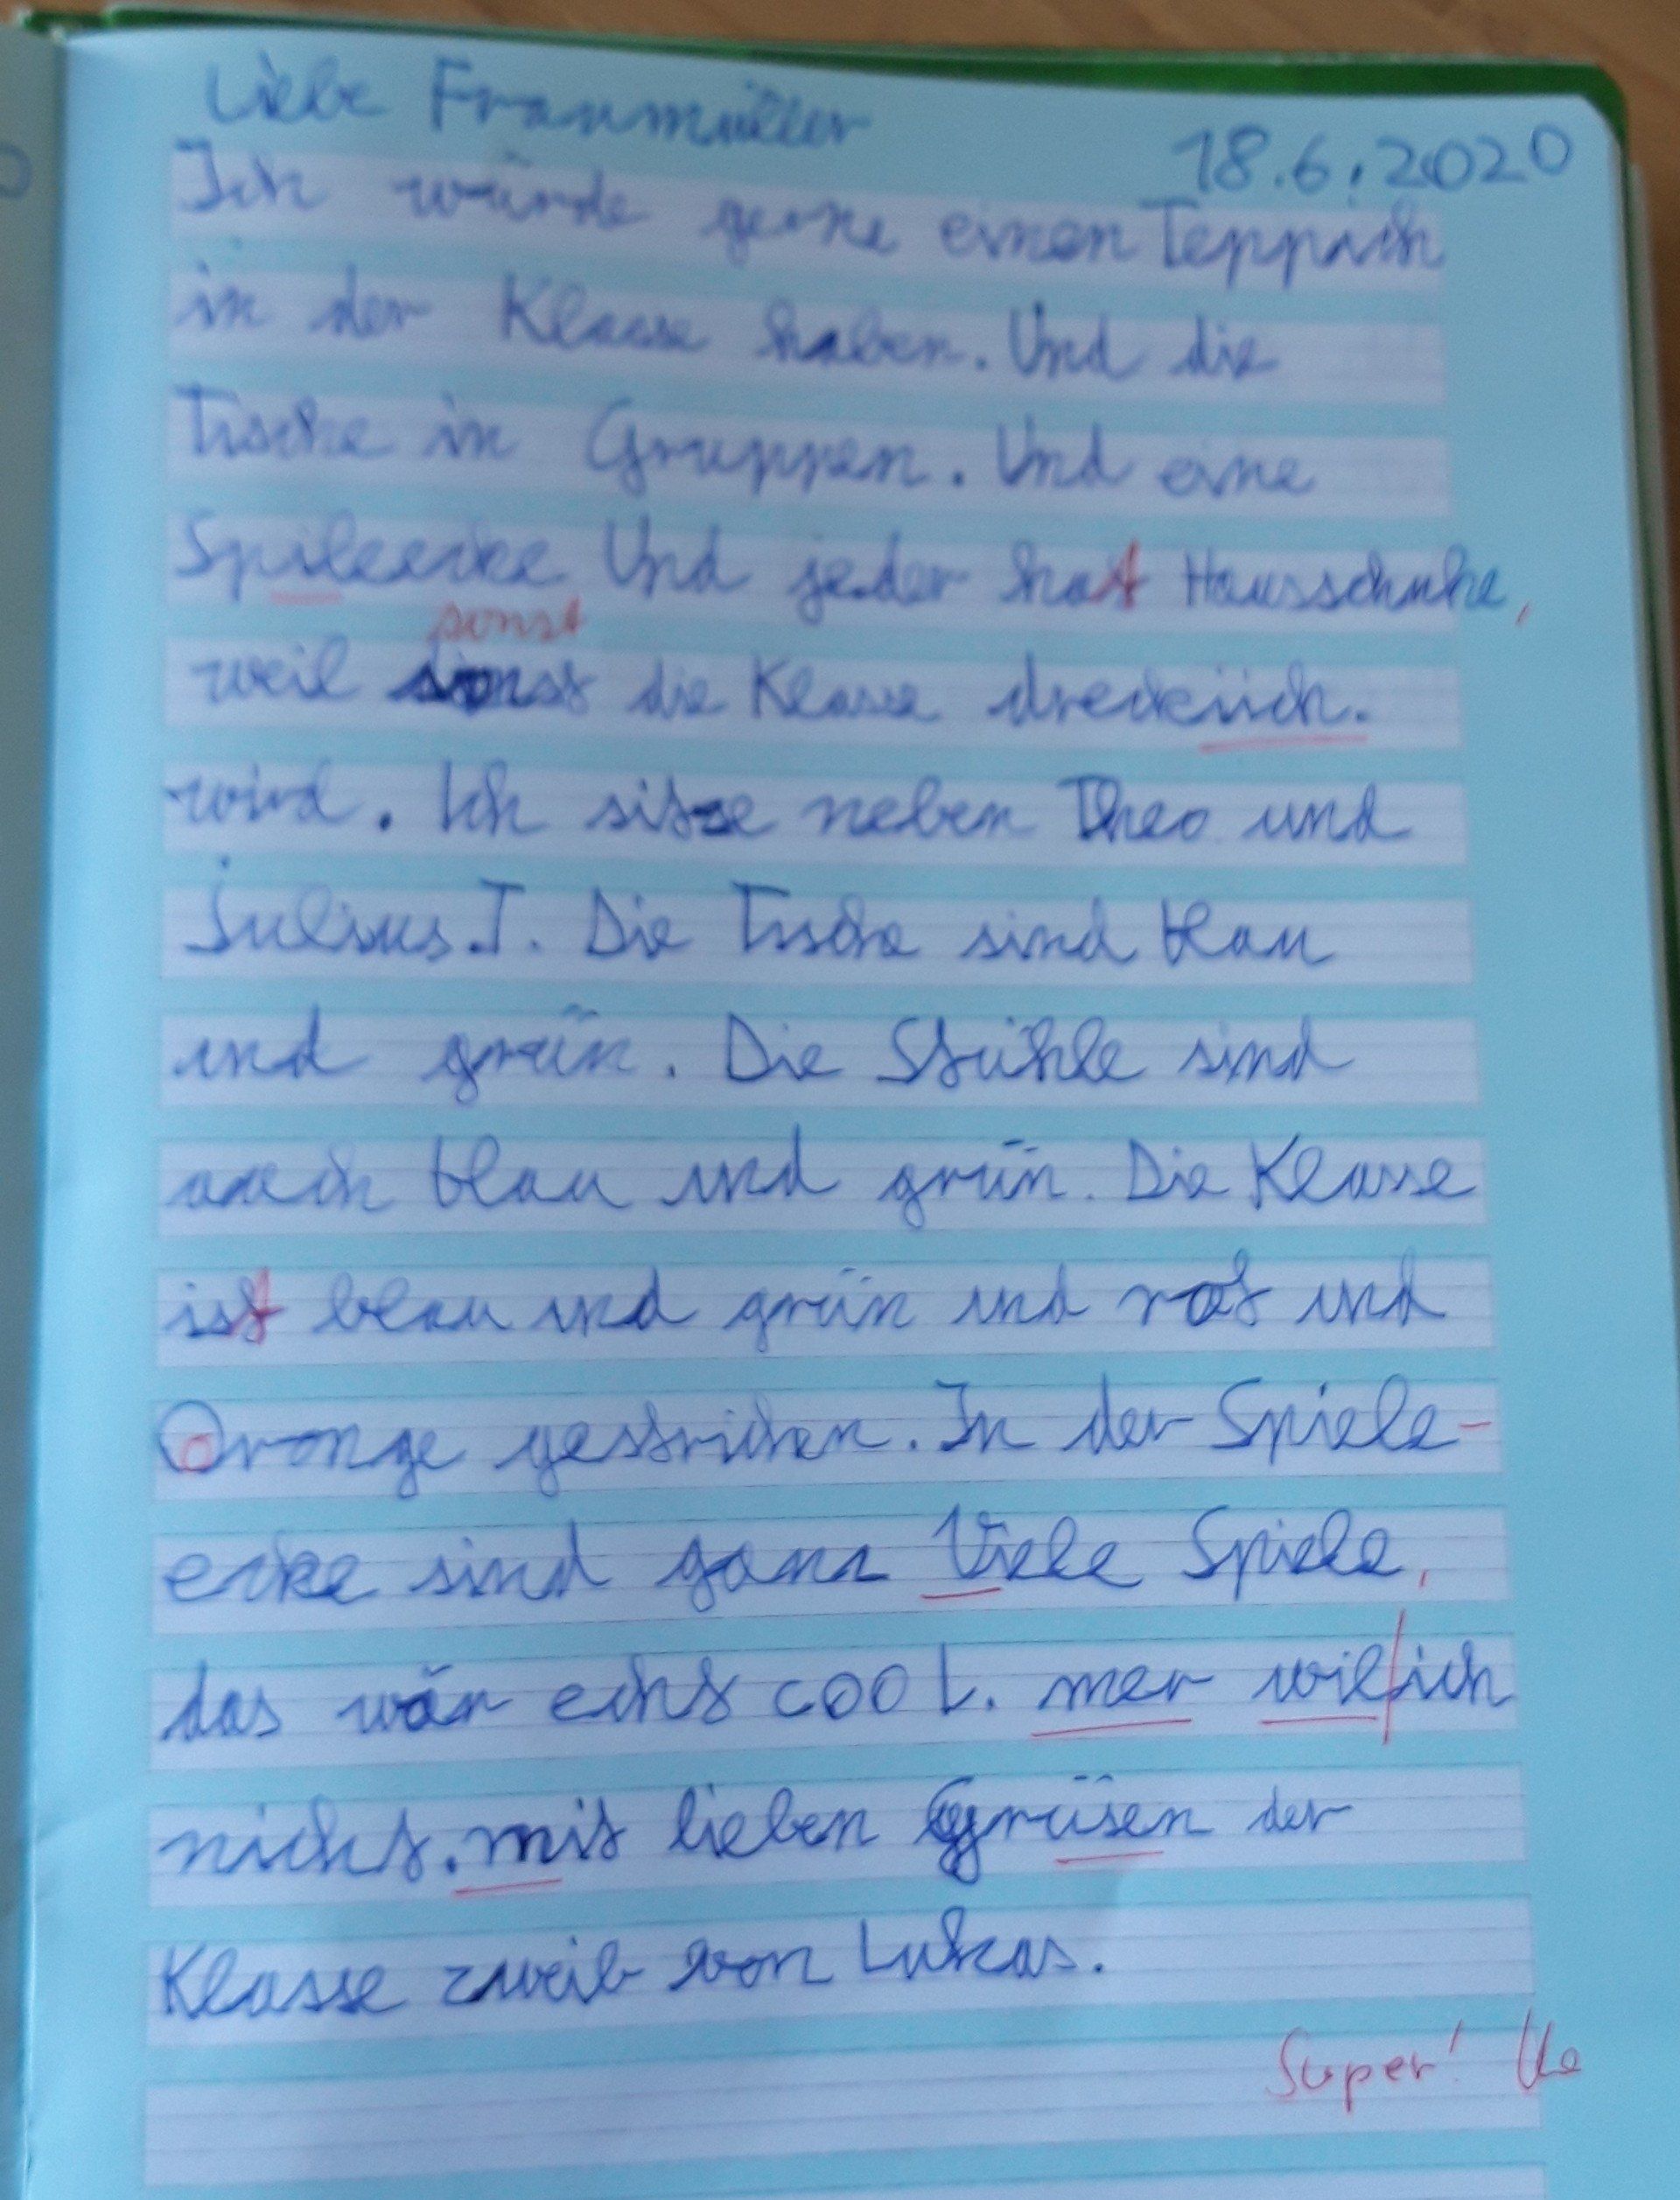 Liebe Fraumüller
18.6.2020
Ich würde gerne einen Teppich
in der Klasse haben. Und die
Tische in Gruppen. Und eine
Spileecke Und jeder hat Hausschuhe,
sonst
weil sonst die Klasse dreckiich.
wird. Ich sitze neben Theo und
Julius.T. Die Tische sind blau
und grün. Die Stühle sind
auch blau und grün. Die Klasse
ist blau und grün und rot und
Orange gestrichen. In der Spiele-
ecke sind ganz Viele Spiele,
das wär echt cool. mer wil/ich
nicht. mit lieben Grüsen der
Klasse zweib von Lukas.
Super!